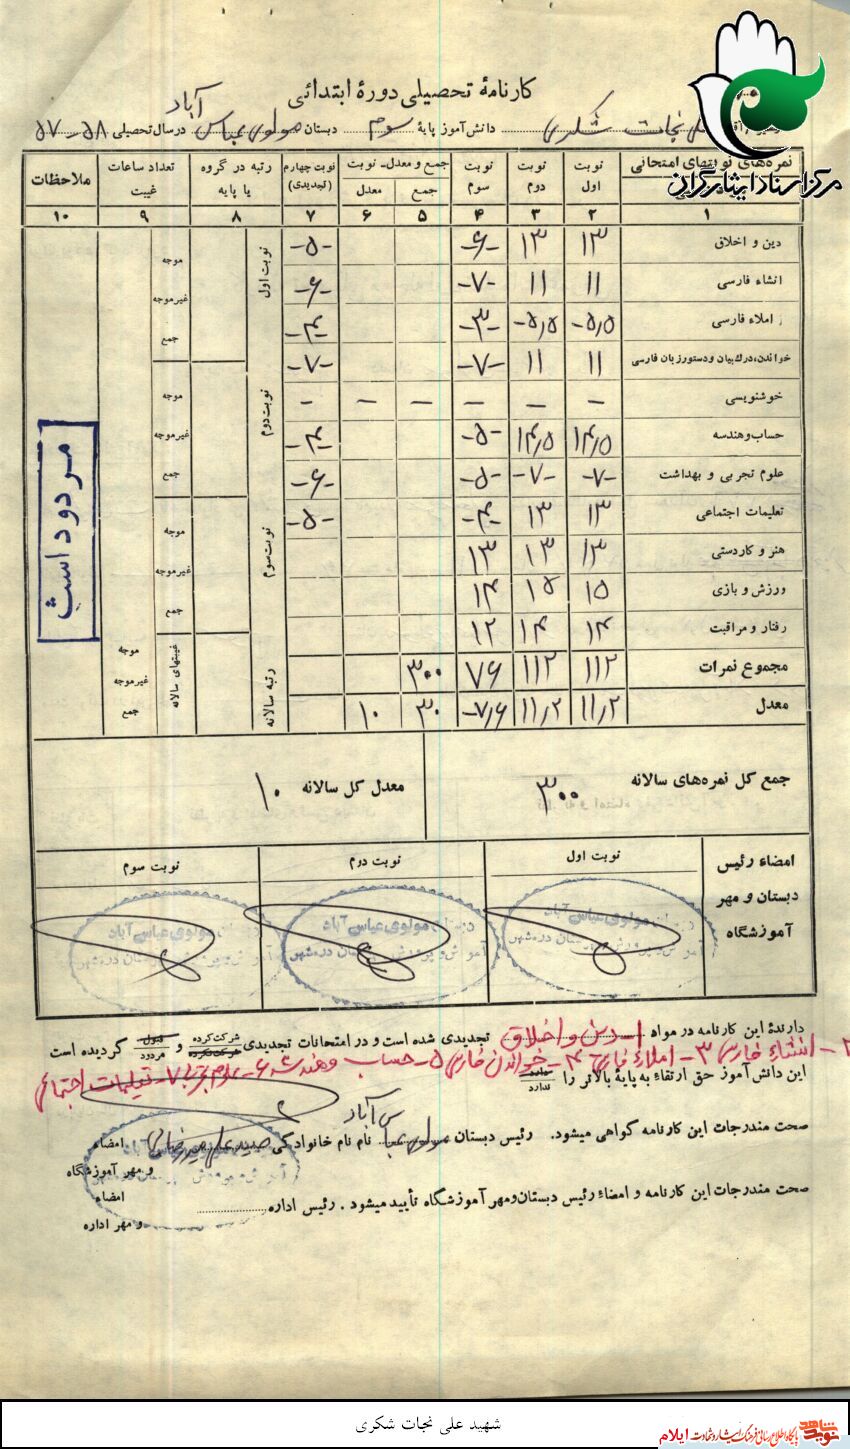 کارنامهٔ تحصیلی دورهٔ ابتدائی
نجات شکری دانش‌آموز پایهٔ سوم دبستان مولوی عباس آباد در سال تحصیلی ۵۸-۵۷
مرکز اسناد ایثارگران
نمره‌های نوبتهای امتحانی نوبت اول نوبت دوم نوبت سوم جمع و معدل- نوبت جمع معدل نوبت چهارم (تجدیدی) رتبه در گروه یا پایه تعداد ساعات غیبت ملاحظات
۱ ۲ ۳ ۴ ۵ ۶ ۷ ۸ ۹ ۱۰
دین و اخلاق ۱۳ ۱۳ -۶- -۵-
انشاء فارسی ۱۱ ۱۱ -۷- -۶-
املاء فارسی -۵٫۵ -۵٫۵ -۳- -۴-
خواندن، درک، بیان و دستور زبان فارسی ۱۱ ۱۱ -۷- -۷-
خوشنویسی - - - - - -
حساب و هندسه ۱۴٫۵ ۱۴٫۵ -۵- -۴-
علوم تجربی و بهداشت -۷- -۷- -۵- -۶-
تعلیمات اجتماعی ۱۳ ۱۳ -۴- -۵-
هنر و کاردستی ۱۳ ۱۳ ۱۳
ورزش و بازی ۱۵ ۱۵ ۱۴
رفتار و مراقبت ۱۴ ۱۴ ۱۲
مجموع نمرات ۱۱۲ ۱۱۲ ۷۶ ۳۰۰
معدل ۱۱٫۲ ۱۱٫۲ -۷٫۶ ۳۰ ۱۰
نوبت اول
موجه
غیرموجه
جمع
نوبت دوم
موجه
غیرموجه
جمع
نوبت سوم
موجه
غیرموجه
جمع
رتبه سالانه
غیبتهای سالانه
موجه
غیرموجه
جمع
مردود است
جمع کل نمره‌های سالانه ۳۰۰ معدل کل سالانه ۱۰
امضاء رئیس دبستان و مهر آموزشگاه
نوبت اول نوبت دوم نوبت سوم
دبستان مولوی عباس آباد
آموزش و پرورش شهرستان دره‌شهر
دبستان مولوی عباس آباد
آموزش و پرورش شهرستان دره‌شهر
دبستان مولوی عباس آباد
آموزش و پرورش شهرستان دره‌شهر
دارندهٔ این کارنامه در مواد ۱- دین و اخلاق تجدیدی شده است و در امتحانات تجدیدی شرکت کرده شرکت نکرده و قبول مردود گردیده است
۲- انشاء فارسی ۳- املاء فارسی ۴- خواندن فارسی ۵- حساب و هندسه ۶- علوم تجربی ۷- تعلیمات اجتماعی
این دانش‌آموز حق ارتقاء به پایهٔ بالاتر را دارد ندارد
صحت مندرجات این کارنامه گواهی میشود. رئیس دبستان مولوی عباس آباد نام نام خانوادگی امضاء
و مهر آموزشگاه
صحت مندرجات این کارنامه و امضاء رئیس دبستان و مهر آموزشگاه تأیید میشود. رئیس اداره
امضاء
و مهر اداره
شهید علی نجات شکری
نوید شاهد پایگاه اطلاع رسانی فرهنگ ایثار و شهادت ایلام